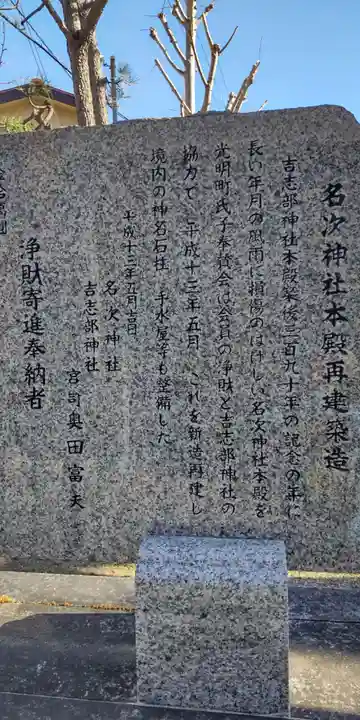 名次神社本殿再建築造
吉志部神社本殿築後三百九十年の記念の年に
長い年月の風雨に損傷のはげしい名次神社本殿を
光明町氏子奉賛会は会員の浄財と吉志部神社の
協力で 平成十三年五月 これを新造再建し
境内の神名石柱 手水屋等も整備した
平成十三年五月吉日
名次神社
吉志部神社
宮司奥田富夫
浄財寄進奉納者